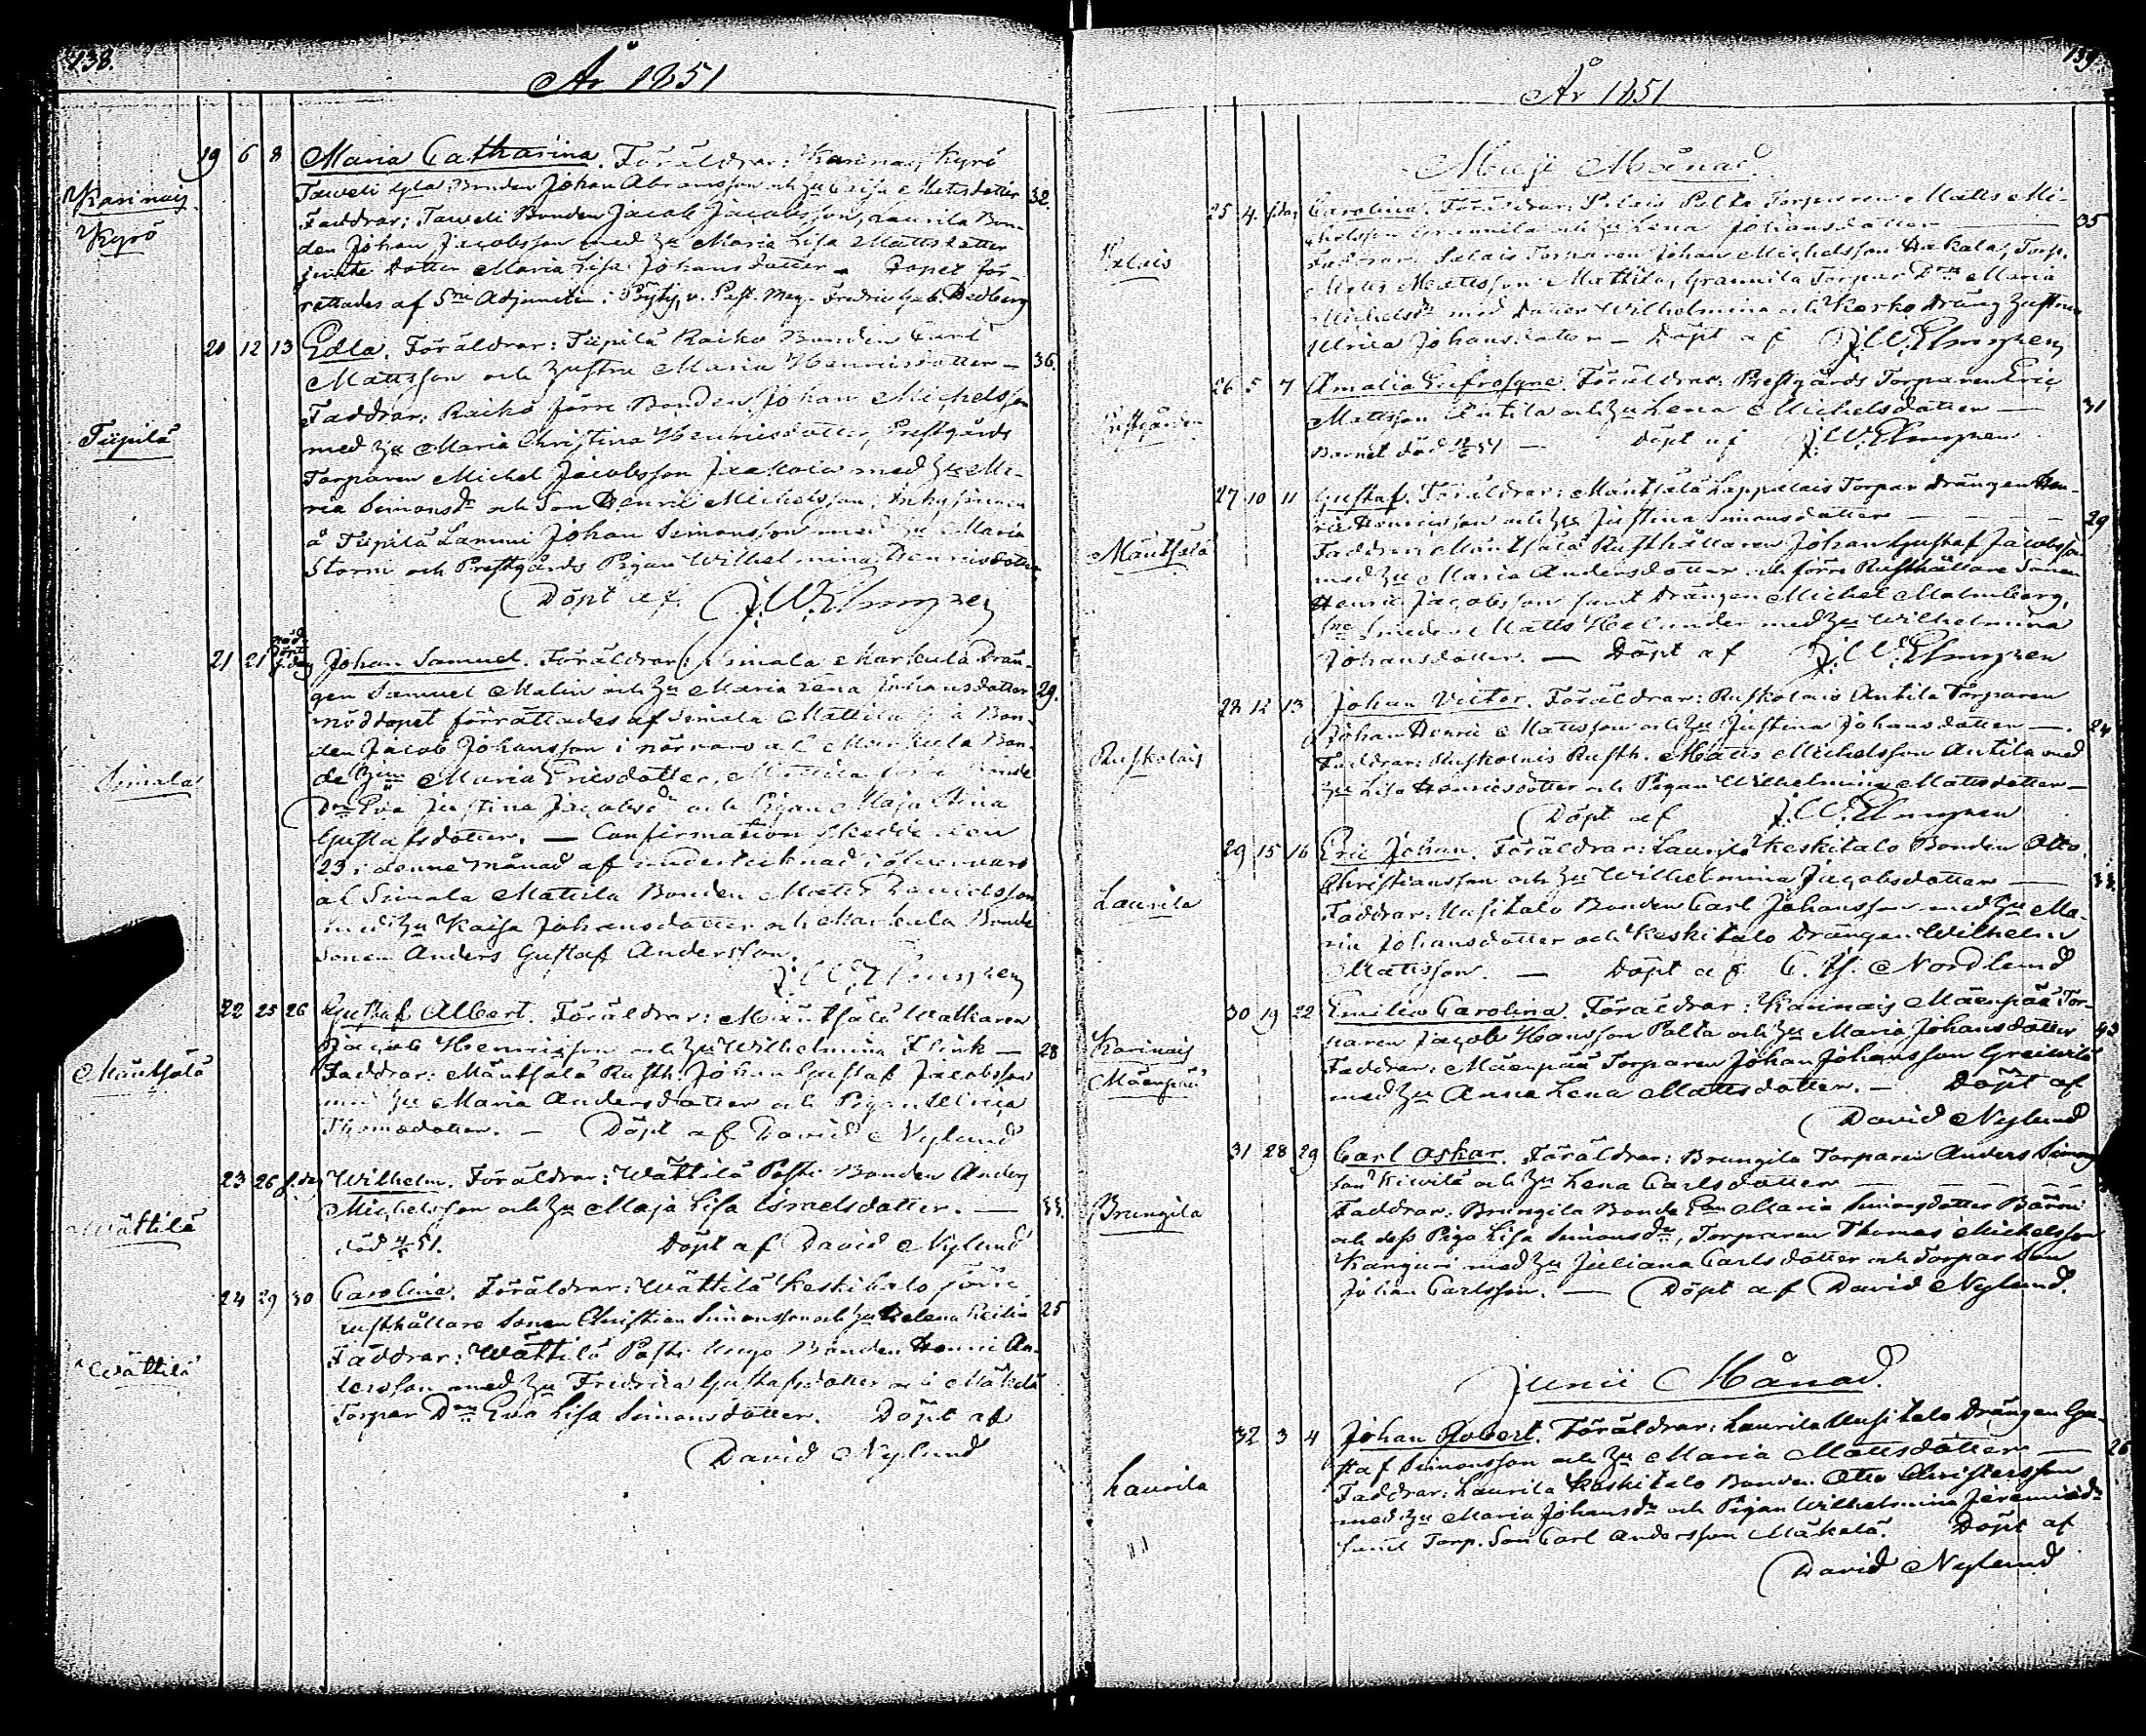 138.
År 1851
Karinais
Kyrö
19 6 8 Maria Catharina. Föräldrar: Karinais Kyrö
Taweli Bonden Johan Abramsson och Hu Caisa Mattsdotter 32.
Faddrar: Taweli Bonden Jacob Jacobsson, Laurila Bon-
den Johan Jacobsson med Hu Maria Lisa Mattsdotter
samt dotter Maria Lisa Johansdotter. Dopet för-
rättades af Adjuncten i Pöytis, v. Past. Mag. Fredric Gab. Hedberg
Tiipilä
20 12 13 Edla. Föräldrar: Tiipilä Raiko Bonden Carl
Mattsson och Hustru Maria Henricsdotter — 36.
Faddrar: Raiko förre Bonden Johan Michelsson
med Hu Maria Christina Henricsdotter, Prestgårds
Torparen Michel Jacobsson Jaakola med Hu Ma-
ria Simonsdr och Son Henric Michelsson, Inhysingen
å Tiipilä Lammi Johan Simonsson med Hu Maria
Storm och Prestgårds Pigan Wilhelmina Henricsdotter
Döpt af J. W. Elmgren
Simala
21 21 nöd-
döpt
s. dag Johan Samuel. Föräldrar: Simala Markula Drän-
gen Samuel Malin och Hu Maria Lena Johansdotter 29.
nöddopet förrättades af Simala Mattila Bon-
den Jacob Johansson i närvaro af Markula Bon-
de Maria Ericsdotter, Mattila förre Bonde
Dn Eva Justina Jacobsdr och Pigan Maja Stina
Gustafsdotter. — Confirmation skedde den
23 i denne månad af undertecknad i öfwerwaro
af Simala Mattila Bonden Matts Davidsson
med Hu Kaisa Johansdotter och Markula Bonde
sonen Anders Gustaf Andersson.
J. W. Elmgren
Mäntsälä
22 25 26 Gustaf Albert. Föräldrar: Mäntsälä Watkaren
Jacob Henricsson och Hu Wilhelmina Flink — 28
Faddrar: Mäntsälä Rusth. Johan Gustaf Jacobsson
med Hu Maria Andersdotter och Pigan Ulrica
Thomasdotter. — Döpt af David Nylund
Wättilä
23 26 s. dag Wilhelm. Föräldrar: Wättilä Posti Bonden Anders
Michelsson och Hu Maja Lisa Israelsdotter. — 33.
död 51. Döpt af David Nylund
Wättilä
24 29 30 Carolina. Föräldrar: Wättilä Keskitalo förre
rusthållare Sonen Christian Simonsson och Hu Helena 25
Faddrar: Wättilä Posti Bonden Henric An-
dersson med Hu Fredrica Gustafsdotter och Mäkelä
Torpar Dn Eva Lisa Simonsdotter. Döpt af
David Nylund
139.
År 1851
Maji Månad.
Palais
25 4. s. dag Carolina. Föräldrar: Palais Palta Torparen Matts Mi-
chelsson Grannila och Hu Lena Johansdotter — 35
Faddrar: Palais Torparen Johan Michelsson Hakala, Torp.
Matts Mattsson Mattila, Grannila Torpar Maria
Michelsdr med Dotter Wilhelmina och Korko Dräng Hustrun
Ulrica Johansdotter — Döpt af J. W. Elmgren
Prestgården
26 5 7 Amalia Eufrosyne. Föräldrar: Prestgårds Torparen Eric
Mattsson Antila och Hu Lena Michelsdotter — 31
Barnet död 51 — Döpt af J. W. Elmgren
Mäntsälä
27 10 11 Gustaf. Föräldrar: Mäntsälä Lappalais Torpar drängen Hen-
ric Henricsson och Hu Justina Simonsdotter — 29
Faddrar: Mäntsälä Rusthållaren Johan Gustaf Jacobsson
med Hu Maria Andersdotter och förre Rusthållare Sonen
Henric Jacobsson samt Drängen Michel Malmberg,
Smeden Matts Helander med Hu Wilhelmina
Johansdotter. — Döpt af J. W. Elmgren
Ruskolais
28 12 13 Johan Victor. Föräldrar: Ruskolais Antila Torparen
Johan Henric Mattsson och Hu Justina Johansdotter —. 24
Faddrar: Ruskolais Rusth. Matts Michelsson Antila med
Hu Lisa Henricsdotter och Pigan Wilhelmina Mattsdotter —
Döpt af J. W. Elmgren
Laurila
29 15 16 Eric Johan. Föräldrar: Laurila Keskitalo Bonden Otto
Christiansson och Hu Wilhelmina Jacobsdotter — 33.
Faddrar: Uusitalo Bonden Carl Johansson med Hu Ma-
ria Johansdotter och Keskitalo Drängen Wilhelm
Mattsson. — Döpt af C. H. Nordlund
Karinais
Mäenpää
30 19 22 Emilia Carolina. Föräldrar: Karinais Mäenpää Tor-
paren Jacob Hansson Palta och Hu Maria Johansdotter 43
Faddrar: Mäenpää Torparen Johan Johansson Greivilä
med Hu Anna Lena Mattsdotter. — Döpt af
David Nylund
Brungila
31 28 29 Carl Oskar. Föräldrar: Brungila Torparen Anders Simons
son Kiwilä och Hu Lena Carlsdotter — — — —
Faddrar: Brungila Bonde Maria Simonsdotter
och dess Piga Lisa Simonsdr, Torparen Thomas Michelsson
Kanguri med Hu Juliana Carlsdotter och Torpar Son
Johan Carlsson. — Döpt af David Nylund.
Junii Månad.
Laurila
32 3 4 Johan Robert. Föräldrar: Laurila Uusitalo Drängen Gu-
staf Simonsson och Hu Maria Mattsdotter — 26
Faddrar: Laurila Keskitalo Bonden Otto Christersson
med Hu Maria Johansdr och Pigan Wilhelmina Jeremiædr
samt Torp. Son Carl Andersson Mäkelä. Döpt af
David Nylund